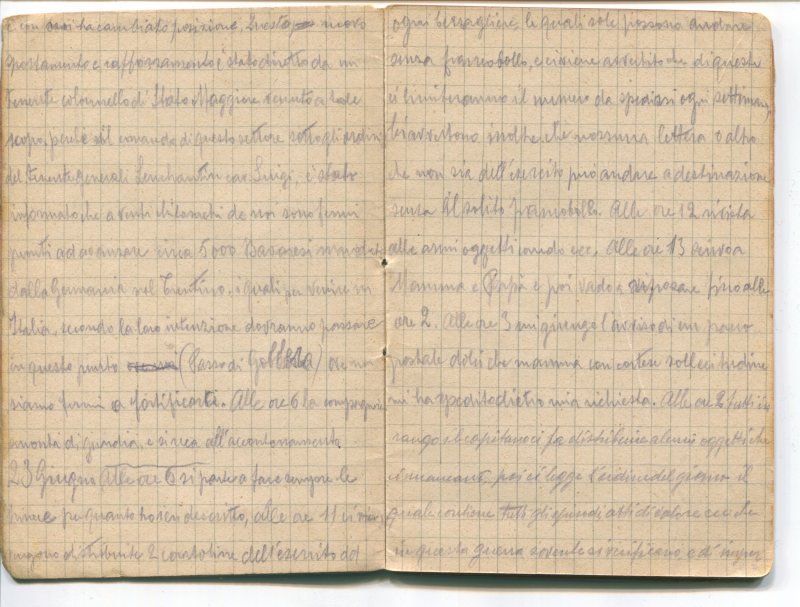 e con noi ha cambiato posizione. Questo nuovo
spostamento e rafforzamento è stato diretto da un
tenente colonnello di Stato Maggiore venuto a tale
scopo, perché il comando di questo settore sotto gli ordini
del Tenente Generali Lenchantin cav. Luigi, è stato
informato che a venti chilometri da noi sono fermi
pronti ad avanzare circa 5000 Bavaresi
dalla Germania nel Trentino, i quali per venire in
Italia, secondo la loro intenzione dovranno passare
in questo punto (Passo di ) ove noi
siamo fermi a fortificarti. Alle ore 6 la compagnia
smonta di guardia, e si reca all'accantonamento.
23 Giugno Alle ore 6 si parte a fare sempre le
per quanto ho scri descritto, alle ore 11 ci
distribuite 2 cartoline dell'esercito ad
ogni bersagliere, le quali sole possono andare
senza francobollo, e ci viene avvertito che di queste
ci limiteranno il numero da spedirsi ogni settimana,
inoltre che nessuna lettera o altro
che non sia dell'esercito può andare a destinazione
senza il solito francobollo. Alle ore 12 rivista
alle armi oggetti corredo ecc. Alle ore 13 scrivo a
Mamma e Papà e poi vado a riposare fino alle
ore 2. Alle ore 3 mi giunge l'avviso di un pacco
postale dolci che mamma con cortese sollecitudine
mi ha spedito dietro mia richiesta. Alle ore 2 tutti in
rango il capitano ci fa distribuire alcuni oggetti che
poi ci legge l'ordine del giorno il
quale contiene tutti gli episodi atti di valore ecc che
in questa guerra sovente si verificano, e d'